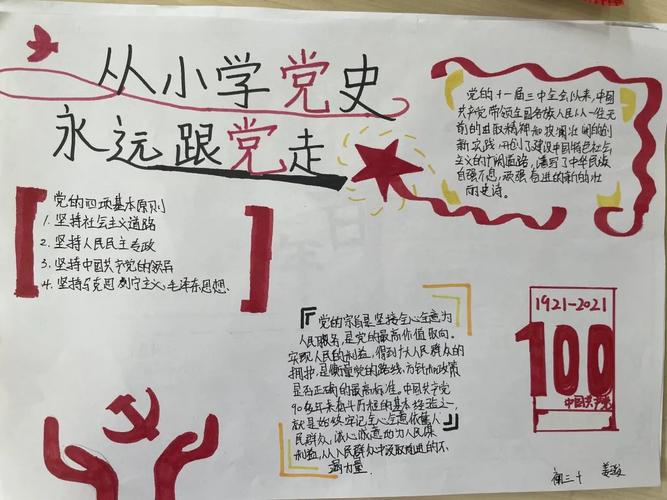 从小学党史
永远跟党走
党的十一届三中全会以来,中国
共产党带领全国各族人民以一往无
前的进取精神和波澜壮阔的创
新实践,开创了建设中国特色社会
主义的广阔道路,谱写了中华民族
自强不息,顽强奋进的新的壮
丽史诗。
党的四项基本原则
1. 坚持社会主义道路
2. 坚持人民民主专政
3. 坚持中国共产党的领导
4. 坚持马克思列宁主义、毛泽东思想.
党的宗旨是坚持全心全意为
人民服务,是党的最高价值取向。
实现人民的利益,得到广大人民群众的
拥护,是衡量党的路线、方针和政策
是否正确的最高标准。中国共产党
90多年来
就是始终牢记全心全意依靠人
民群众,诚心诚意的为人民谋
利益,从人民群众中汲取前进的不
竭力量.
1921-2021
100
中国共产党
初三十